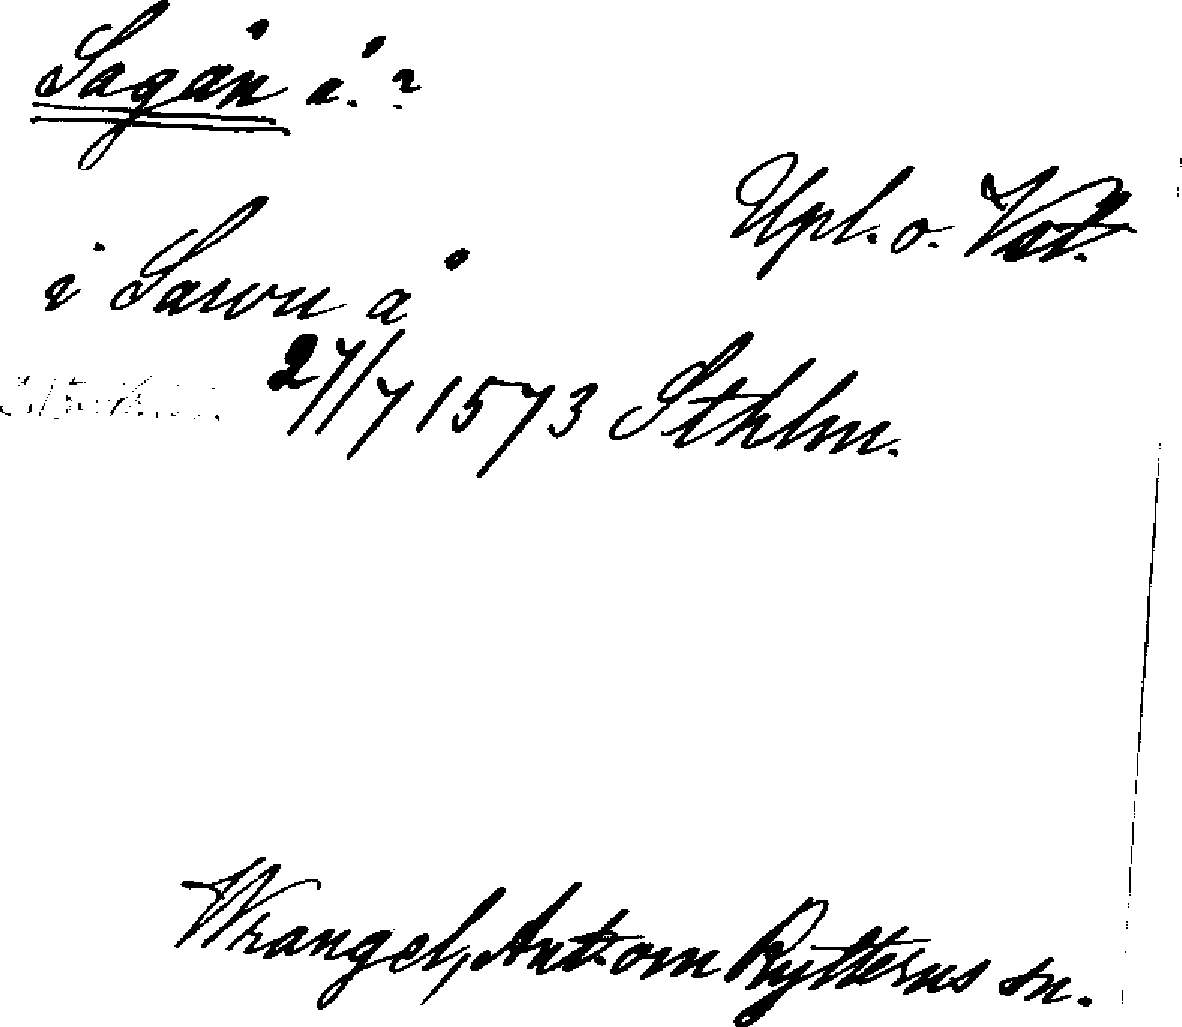 Sagån å. ?
Upl. o. Vstl.
i Sarou å
27/7 1573 Sthlm.
Wrangel, Ant. om Rytterns sn.